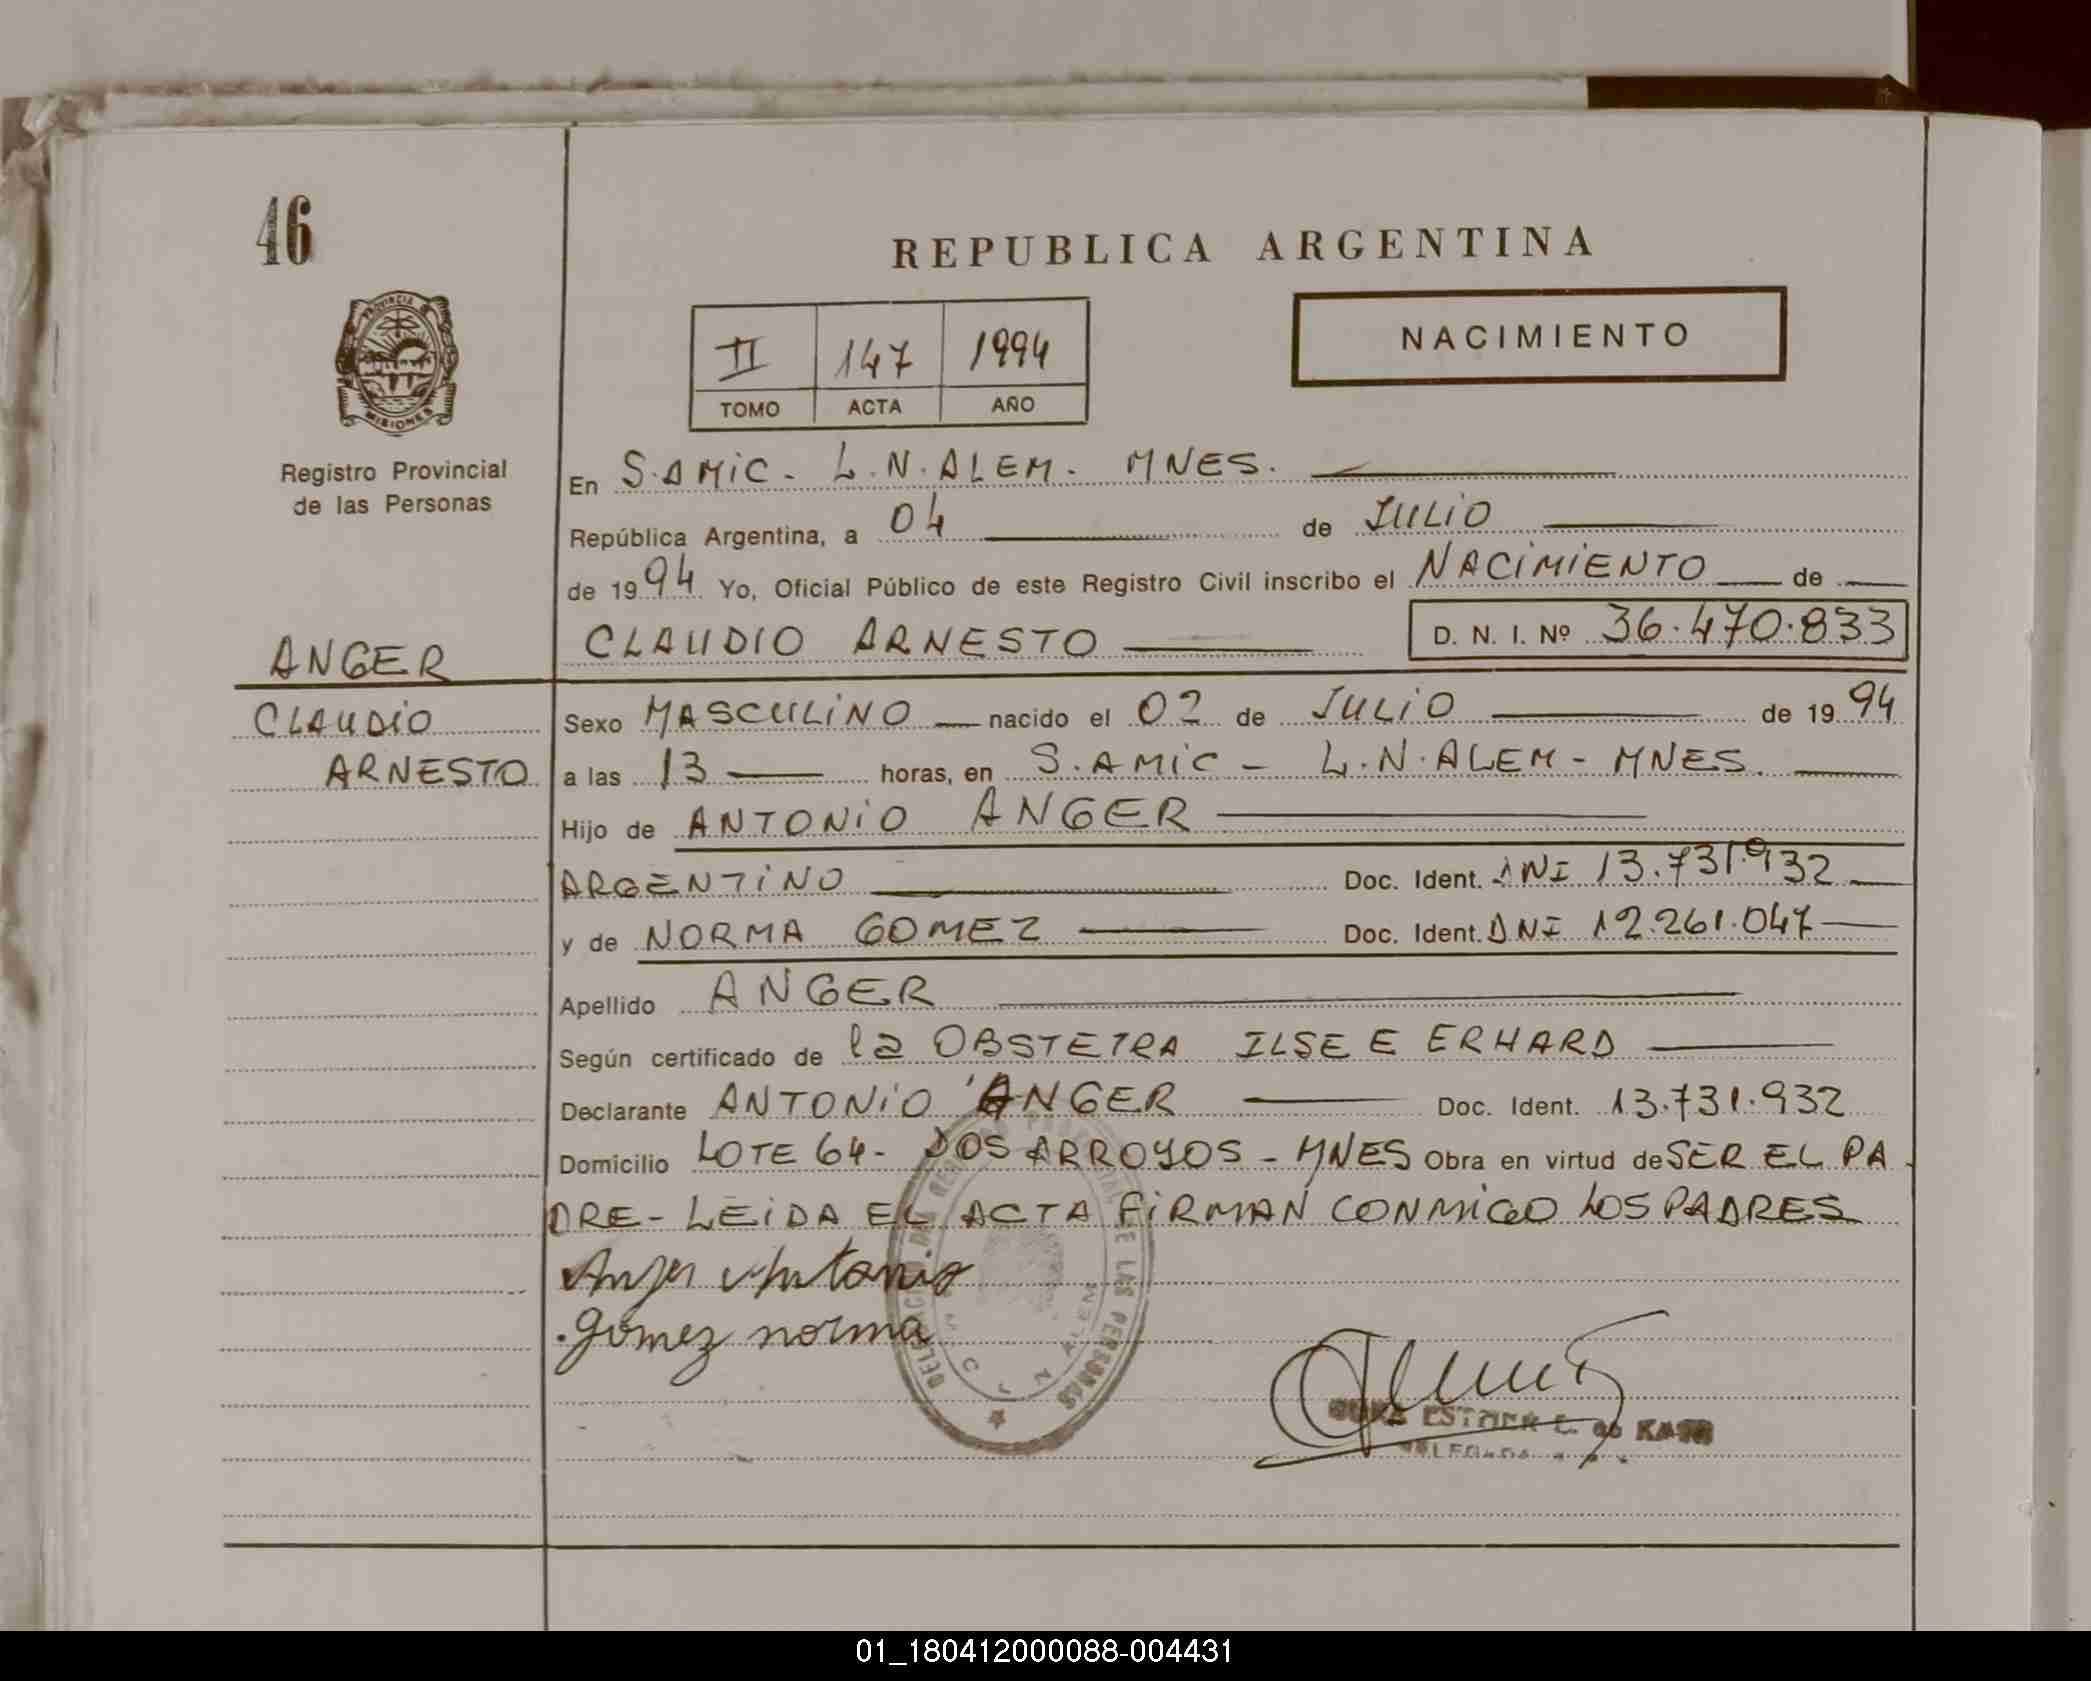 46
REPUBLICA ARGENTINA
PROVINCIA
MISIONES
II 147 1994
TOMO ACTA AÑO
NACIMIENTO
Registro Provincial
de las Personas
En S.AMIC - L.N.ALEM - MNES.
República Argentina, a 04 de JULIO
de 1994 Yo, Oficial Público de este Registro Civil inscribo el NACIMIENTO de
ANGER CLAUDIO ARNESTO D. N. I. Nº 36.470.833
CLAUDIO Sexo MASCULINO nacido el 02 de JULIO de 1994
ARNESTO a las 13 horas, en S.AMIC - L.N.ALEM - MNES.
Hijo de ANTONIO ANGER
ARGENTINO Doc. Ident. DNI 13.731.932
y de NORMA GOMEZ Doc. Ident. DNI 12.261.047
Apellido ANGER
Según certificado de la OBSTETRA ILSE E ERHARD
Declarante ANTONIO ANGER Doc. Ident. 13.731.932
Domicilio LOTE 64 - DOS ARROYOS - MNES Obra en virtud de SER EL PA
DRE - LEIDA EL ACTA FIRMAN CONMIGO LOS PADRES
Anger Antonio
Gomez norma
DE LAS PERSONAS
N ALEM
01_180412000088-004431